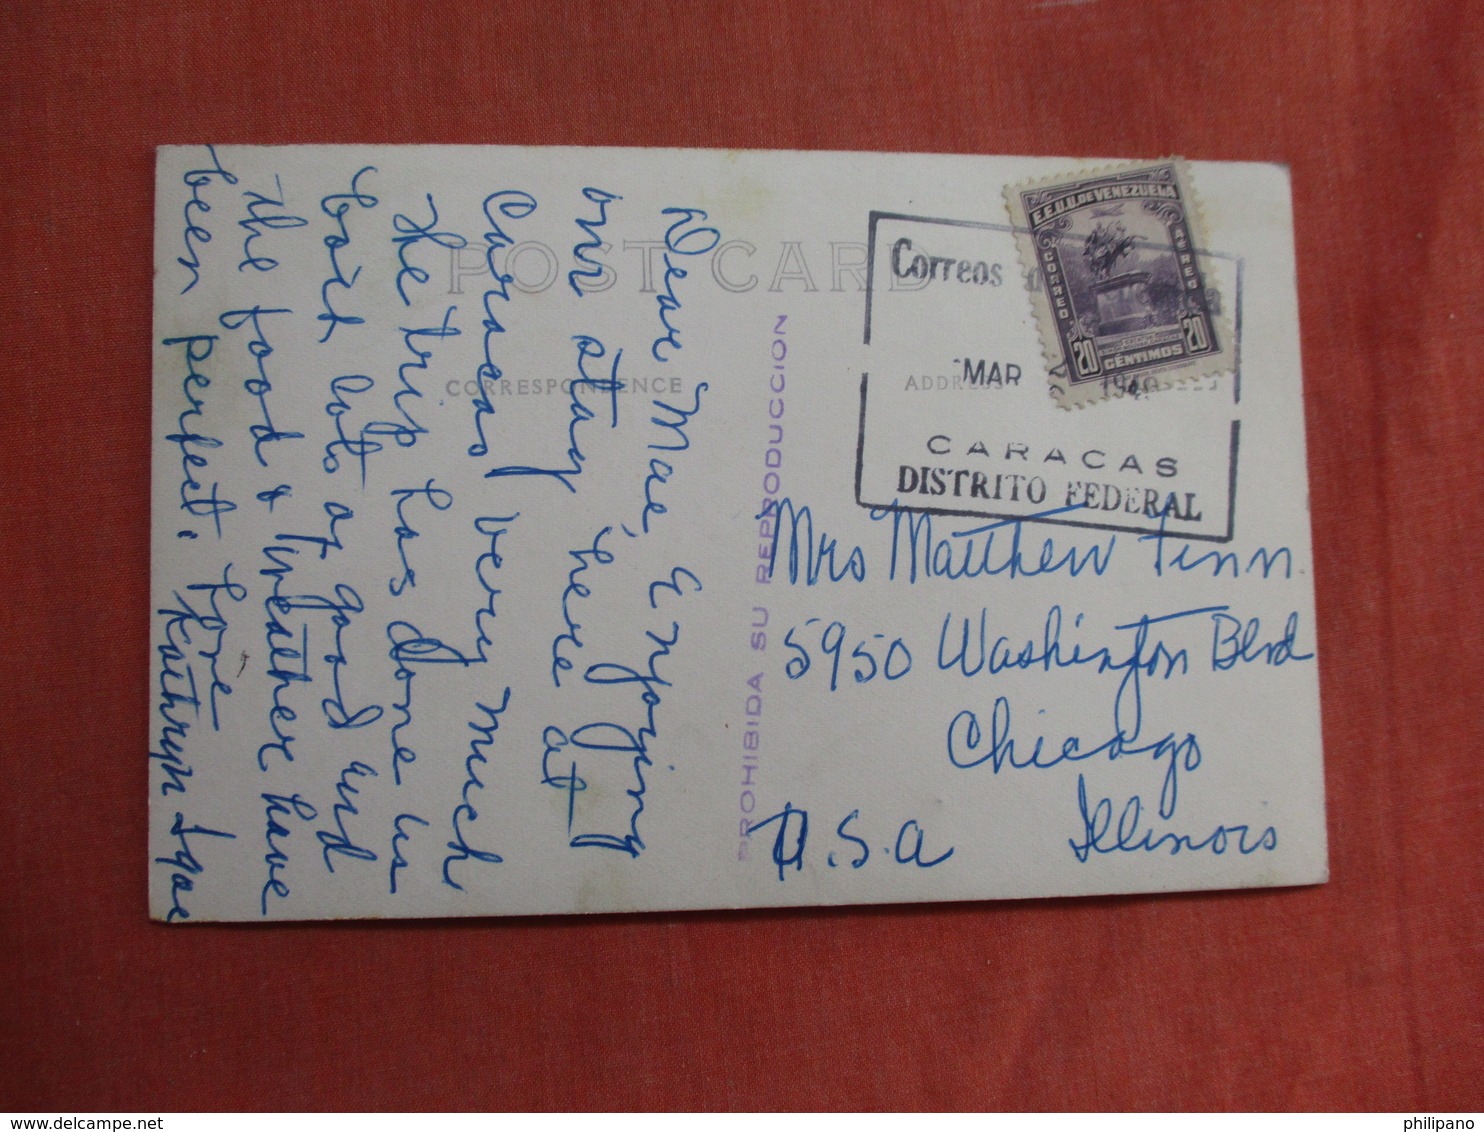 POST CARD
CORRESPONDENCE
ADDRESS
Dear Mae, Enjoying
our stay here at
Caracas very much
The trip has done us
both lots of good and
the food & weather have
been perfect. Love
Kathryn Igoe
PROHIBIDA SU REPRODUCCION
E.E.U.U. DE VENEZUELA
CORREO
AEREO
20
20
CENTIMOS
Correos
MAR
CARACAS
DISTRITO FEDERAL
Mrs Matthew Finn.
5950 Washington Blvd
Chicago
Illinois
U.S.A
www.delcampe.net
philipano